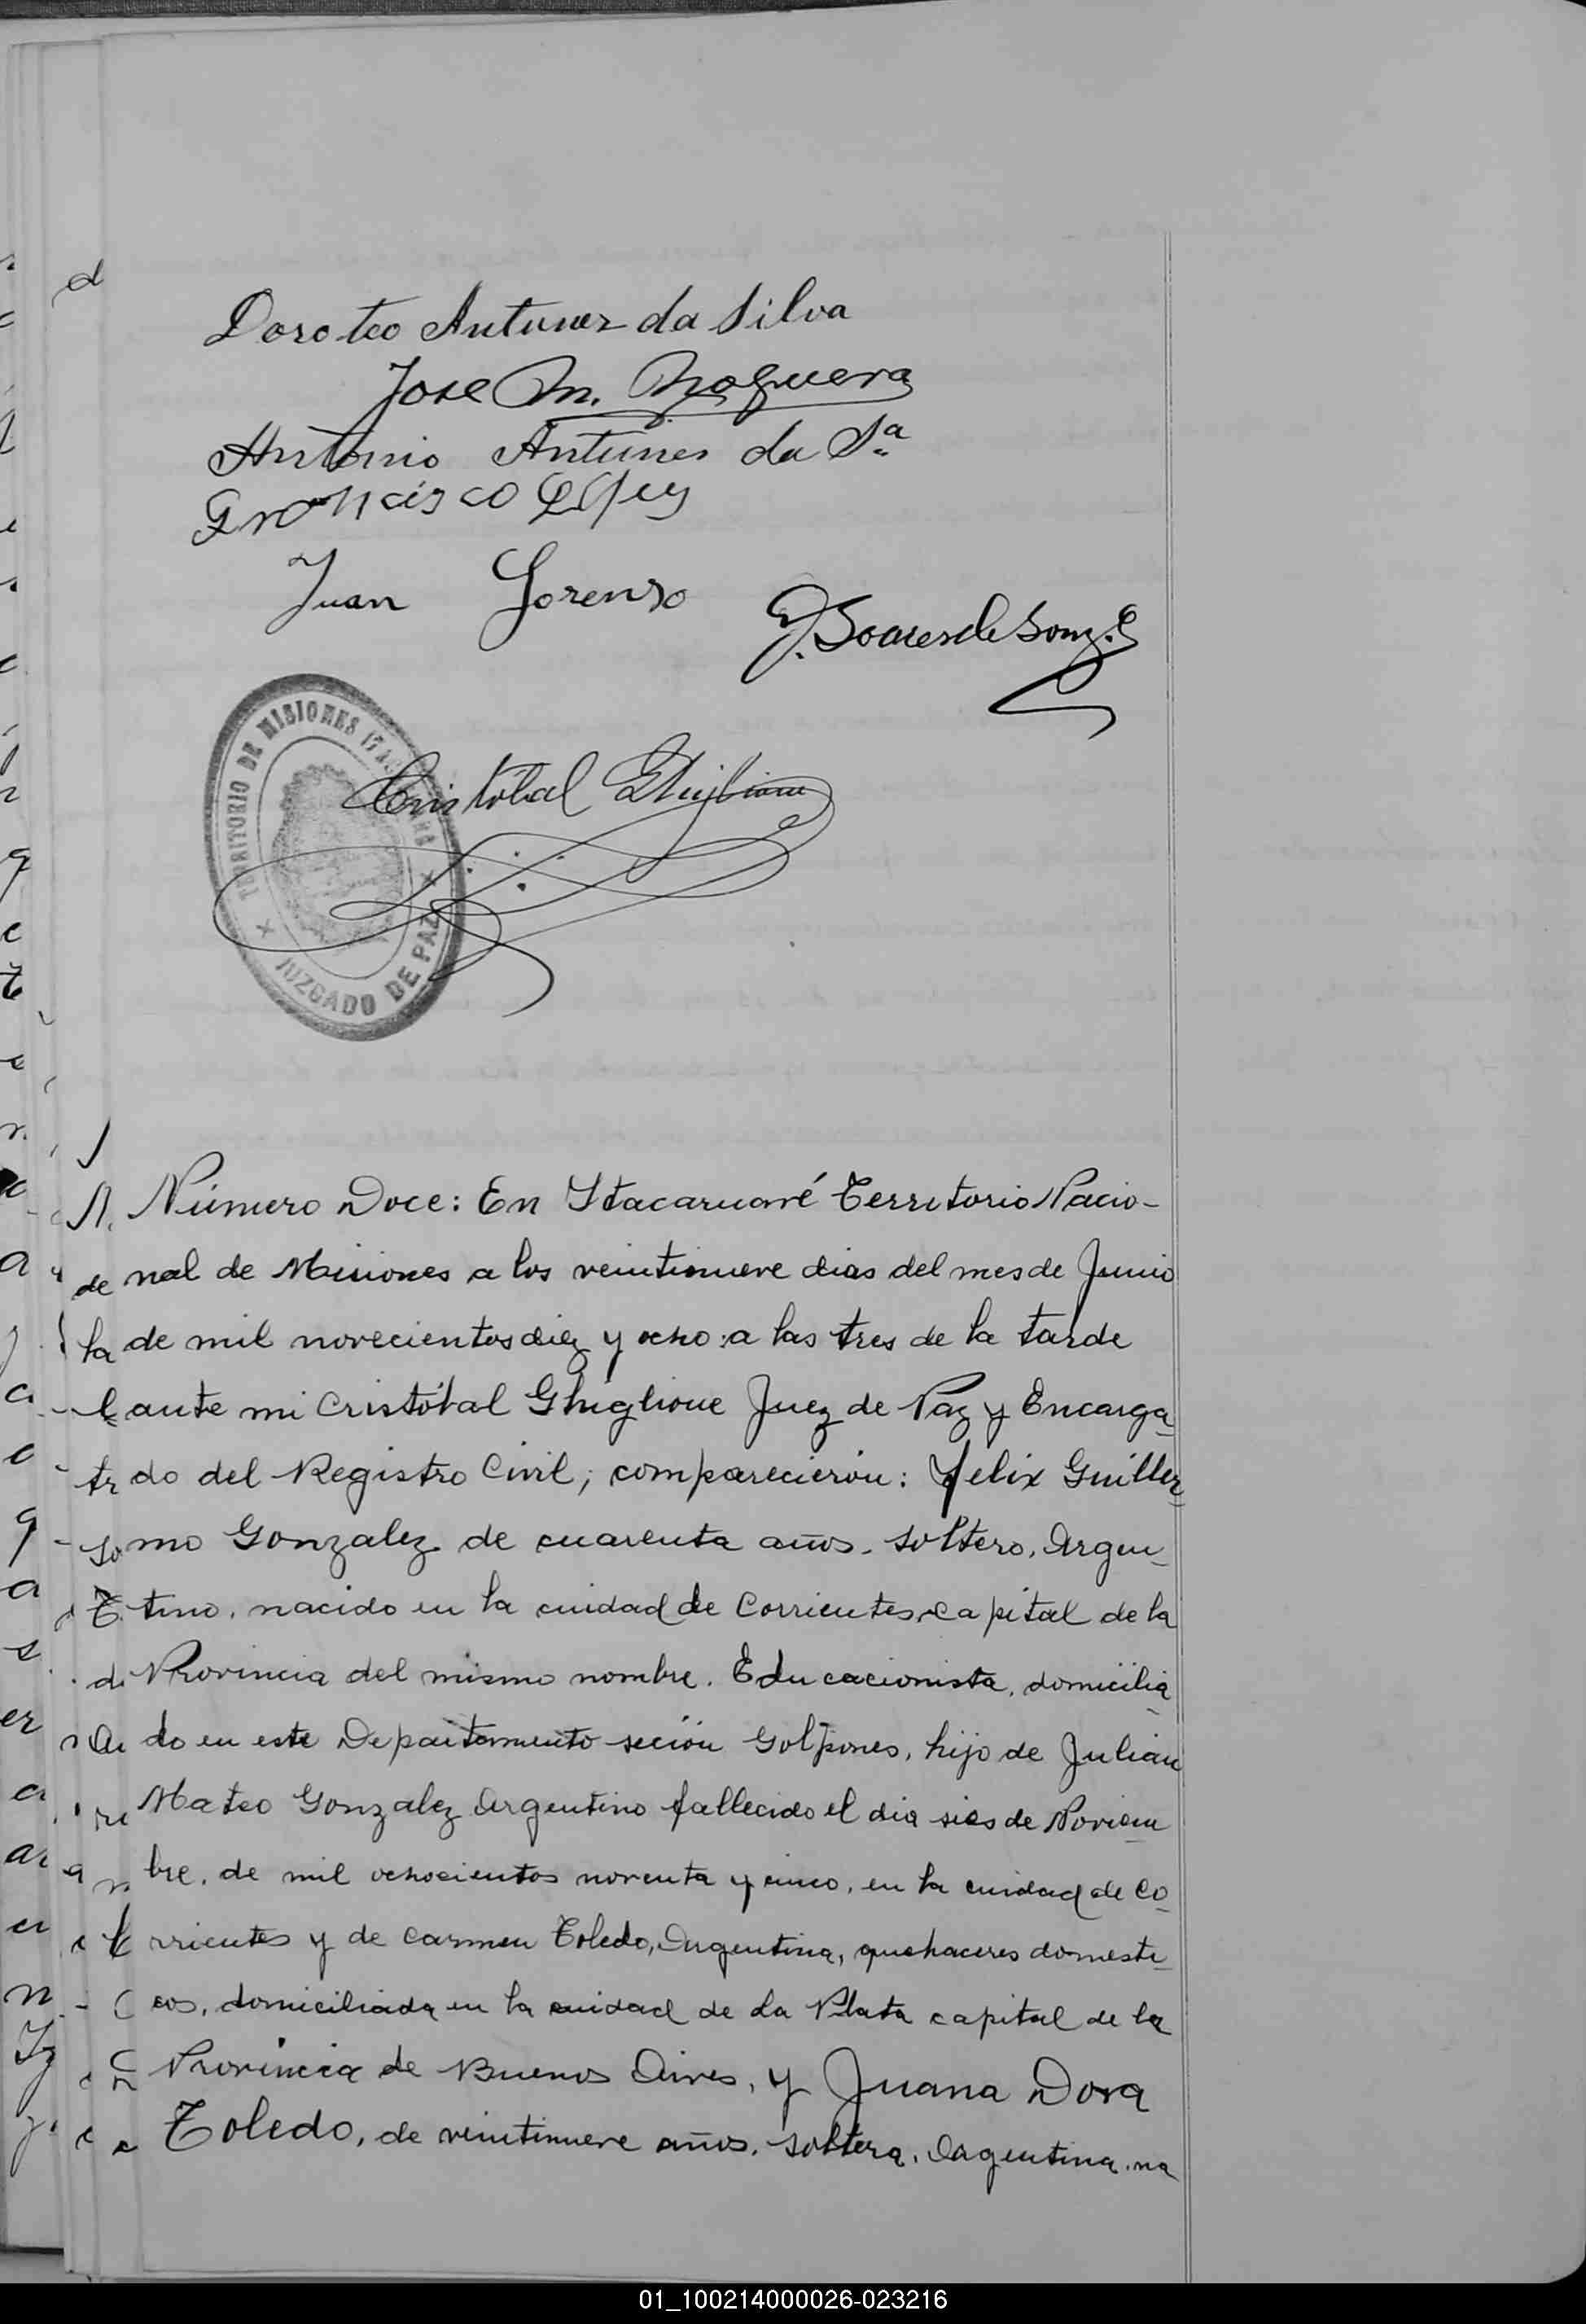 d
Doroteo Antunez da Silva
Jose M. Noguera
Antonio Antunes da Sª
Francisco
Juan Lorenzo
J. Soares de Souz.
TERRITORIO DE MISIONES
Cristóbal Ghiglione
JUZGADO DE PAZ
Número Doce: En Ytacaruaré Territorio Nacio-
nal de Misiones a los veintinueve dias del mes de Junio
de mil novecientos diez y ocho: a las tres de la tarde
ante mi Cristóbal Ghiglione Juez de Paz y Encarga
do del Registro Civil; comparecieron: Felix Guiller
mo Gonzalez de cuarenta años. soltero, Argen
tino, nacido en la ciudad de Corrientes, capital de la
Provincia del mismo nombre. Educacionista, domicilia
do en este Departamento seción Golpones, hijo de Julian
Mateo Gonzalez Argentino fallecido el dia sies de Noviem
bre, de mil ochocientos noventa y cinco, en la ciudad de Co
rrientes y de Carmen Toledo, Argentina, quehaceres domesti
cos, domiciliada en la ciudad de La Plata capital de la
Provincia de Buenos Aires, y Juana Dora
Toledo, de veintinueve años, soltera, Argentina, na
01_100214000026-023216